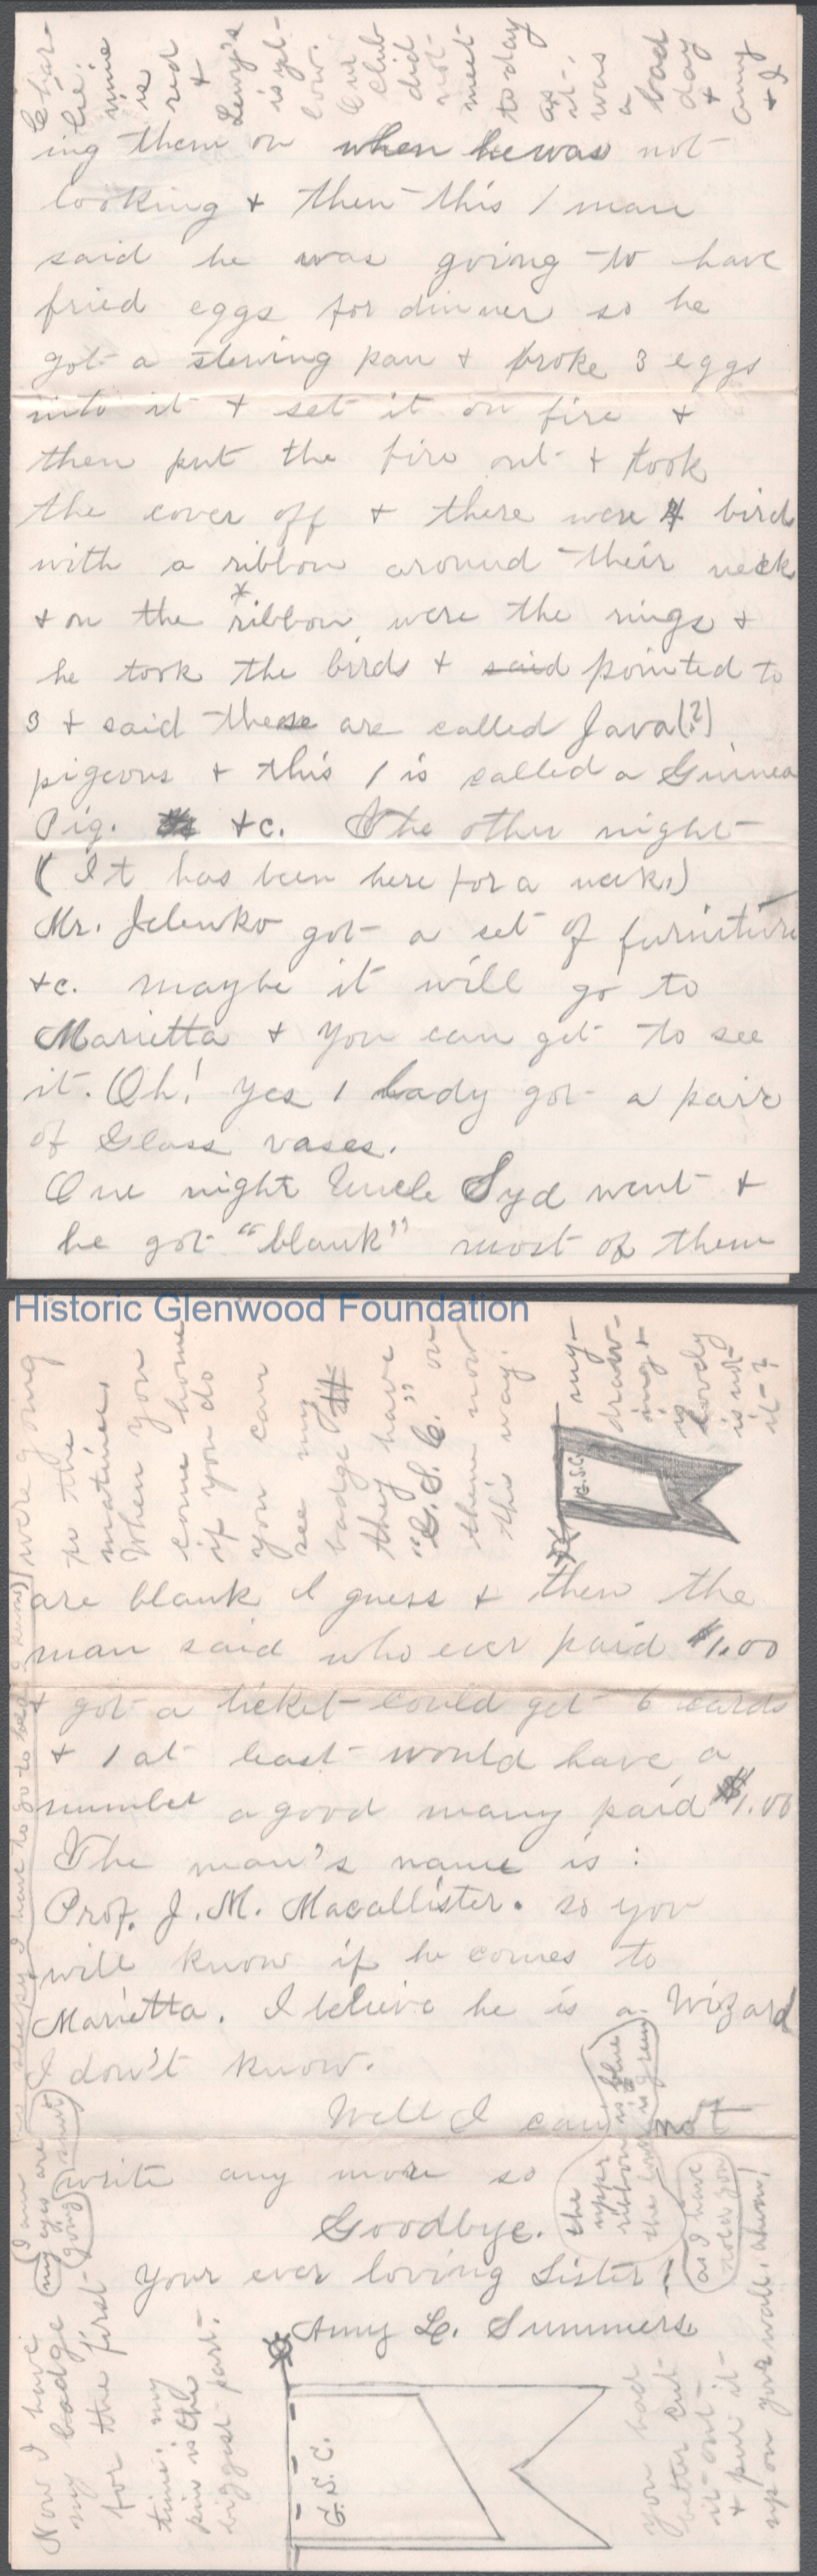 Char-
lie.
mine
is
red
+
Lewy's
is yel-
low.
Our
club
did
not
meet
today
as
it
was
a
bad
day
+
Amy
+ I
ing them on when he was not
looking + then this 1 man
said he was going to have
fried eggs for dinner so he
got a stewing pan + broke 3 eggs
into it + set it on fire +
then put the fire out + took
the cover off + there were 4 birds
with a ribbon around their neck
+ on the ribbon were the rings +
he took the birds + said pointed to
3 + said these are called Java(?)
pigeons + this 1 is called a Guinea
Pig. +c. The other night
(It has been here for a week.)
Mr. Jelenko got a set of furniture
+c. maybe it will go to
Marietta + you can get to see
it. Oh! yes 1 lady got a pair
of Glass vases.
One night Uncle Syd went +
he got "blank" most of them
Historic Glenwood Foundation
were going
to the
matinee.
When you
come home
if you do
you can
see my
badge
they have
"G. S. C." on
them now
this way.
G.S.C.
my
draw-
ing
is
lovely
is not
it?
are blank I guess + then the
man said who ever paid $1.00
+ got a ticket could get 6 cards
+ 1 at least would have a
number a good many paid $1.00
The man's name is:
Prof. J. M. Macallister. so you
will know if he comes to
Marietta. I believe he is a Wizard
I don't know.
Well I can not
write any more so
Goodbye.
Your ever loving Sister!
Amy L. Summers.
the
upper
ribbon is blue
the is green
as I have
told you
(I am sleepy I have to go to bed
my eyes are
going shut
Now I have
my badge
for the first
time. my
pin is the
biggest part.
G. S. C.
you had
better cut
it out
+ put it
up on your wall, ahem!